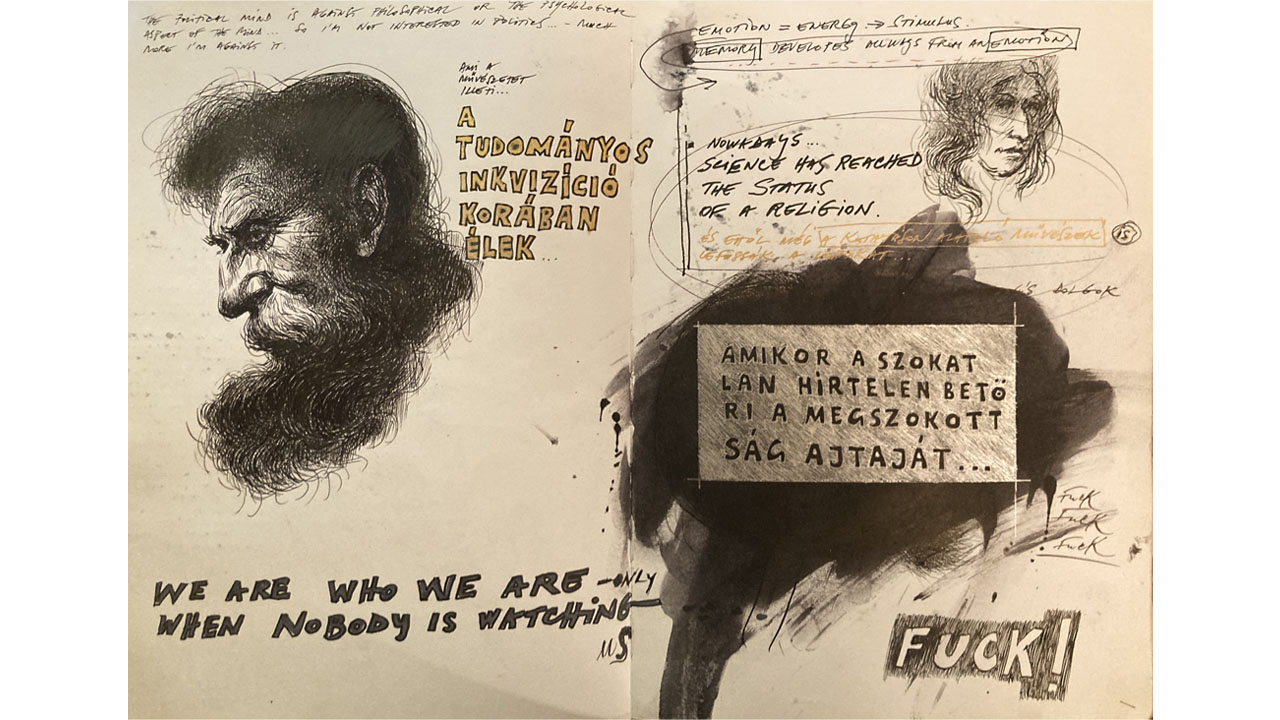 THE POLITICAL MIND IS AGAINST PHILOSOPHICAL OR THE PSYCHOLOGICAL
ASPECT OF THE MIND... SO I'M NOT INTERESTED IN POLITICS... - MUCH
MORE I'M AGAINST IT.
AMI A
MŰVÉSZETET
ILLETI...
A
TUDOMÁNYOS
INKVIZÍCIÓ
KORÁBAN
ÉLEK...
WE ARE WHO WE ARE -ONLY
WHEN NOBODY IS WATCHING-
US
EMOTION = ENERGY → STIMULUS.
MEMORY DEVELOPES ALLWAYS FROM AN EMOTION
NOWADAYS...
SCIENCE HAS REACHED
THE STATUS
OF A RELIGION.
ÉS ETTŐL MÉG A MŰVÉSZEK
A
IS
DOLGOK
AMIKOR A SZOKAT
LAN HIRTELEN BETÖ
RI A MEGSZOKOTT
SÁG AJTAJÁT...
FUCK
FUCK
FUCK
FUCK!